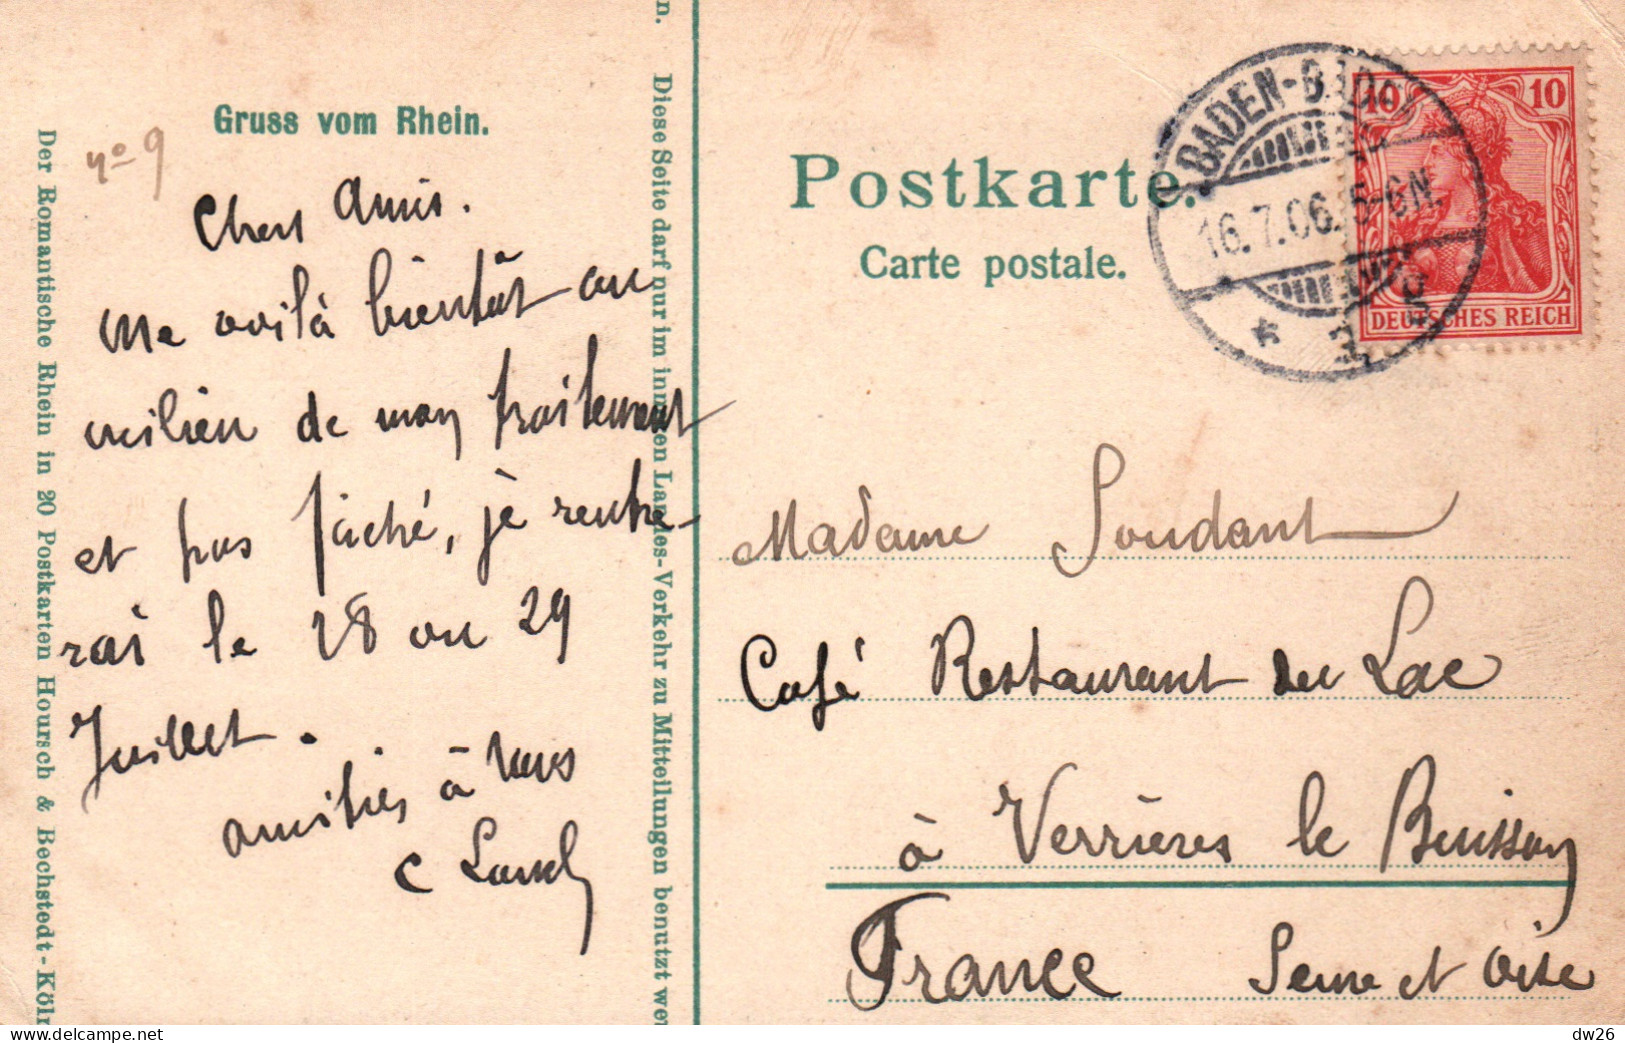 Gruss vom Rhein.
nº 9
Chers Amis.
Me voilà bientôt au
milieu de mon traitement
et pas fâché, je rentre-
rai le 28 ou 29
Juillet.
amitiés à tous
Der Romantische Rhein in 20 Postkarten Hoursch & Bechstedt-Köln
Diese Seite darf nur im inneren Landes-Verkehr zu Mitteilungen benutzt wer
n.
Postkarte.
Carte postale.
BADEN-BADEN
16.7.06. 5-6N.
10 10
DEUTSCHES REICH
Madame Soudant
Café Restaurant du Lac
à Verrières le Buisson
France Seine et Oise
dw26